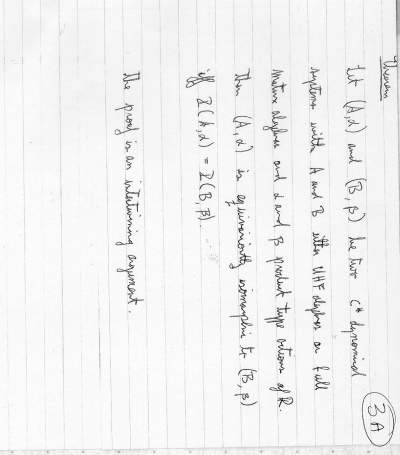 3A
Theorem
Let (A,α) and (B,β) be two C* dynamical
systems with A and B either UHF algebras or full
matrix algebras and α and β product type actions of R.
Then (A,α) is equivariantly isomorphic to (B,β)
iff (A,α) = (B,β).
The proof is an intertwining argument.